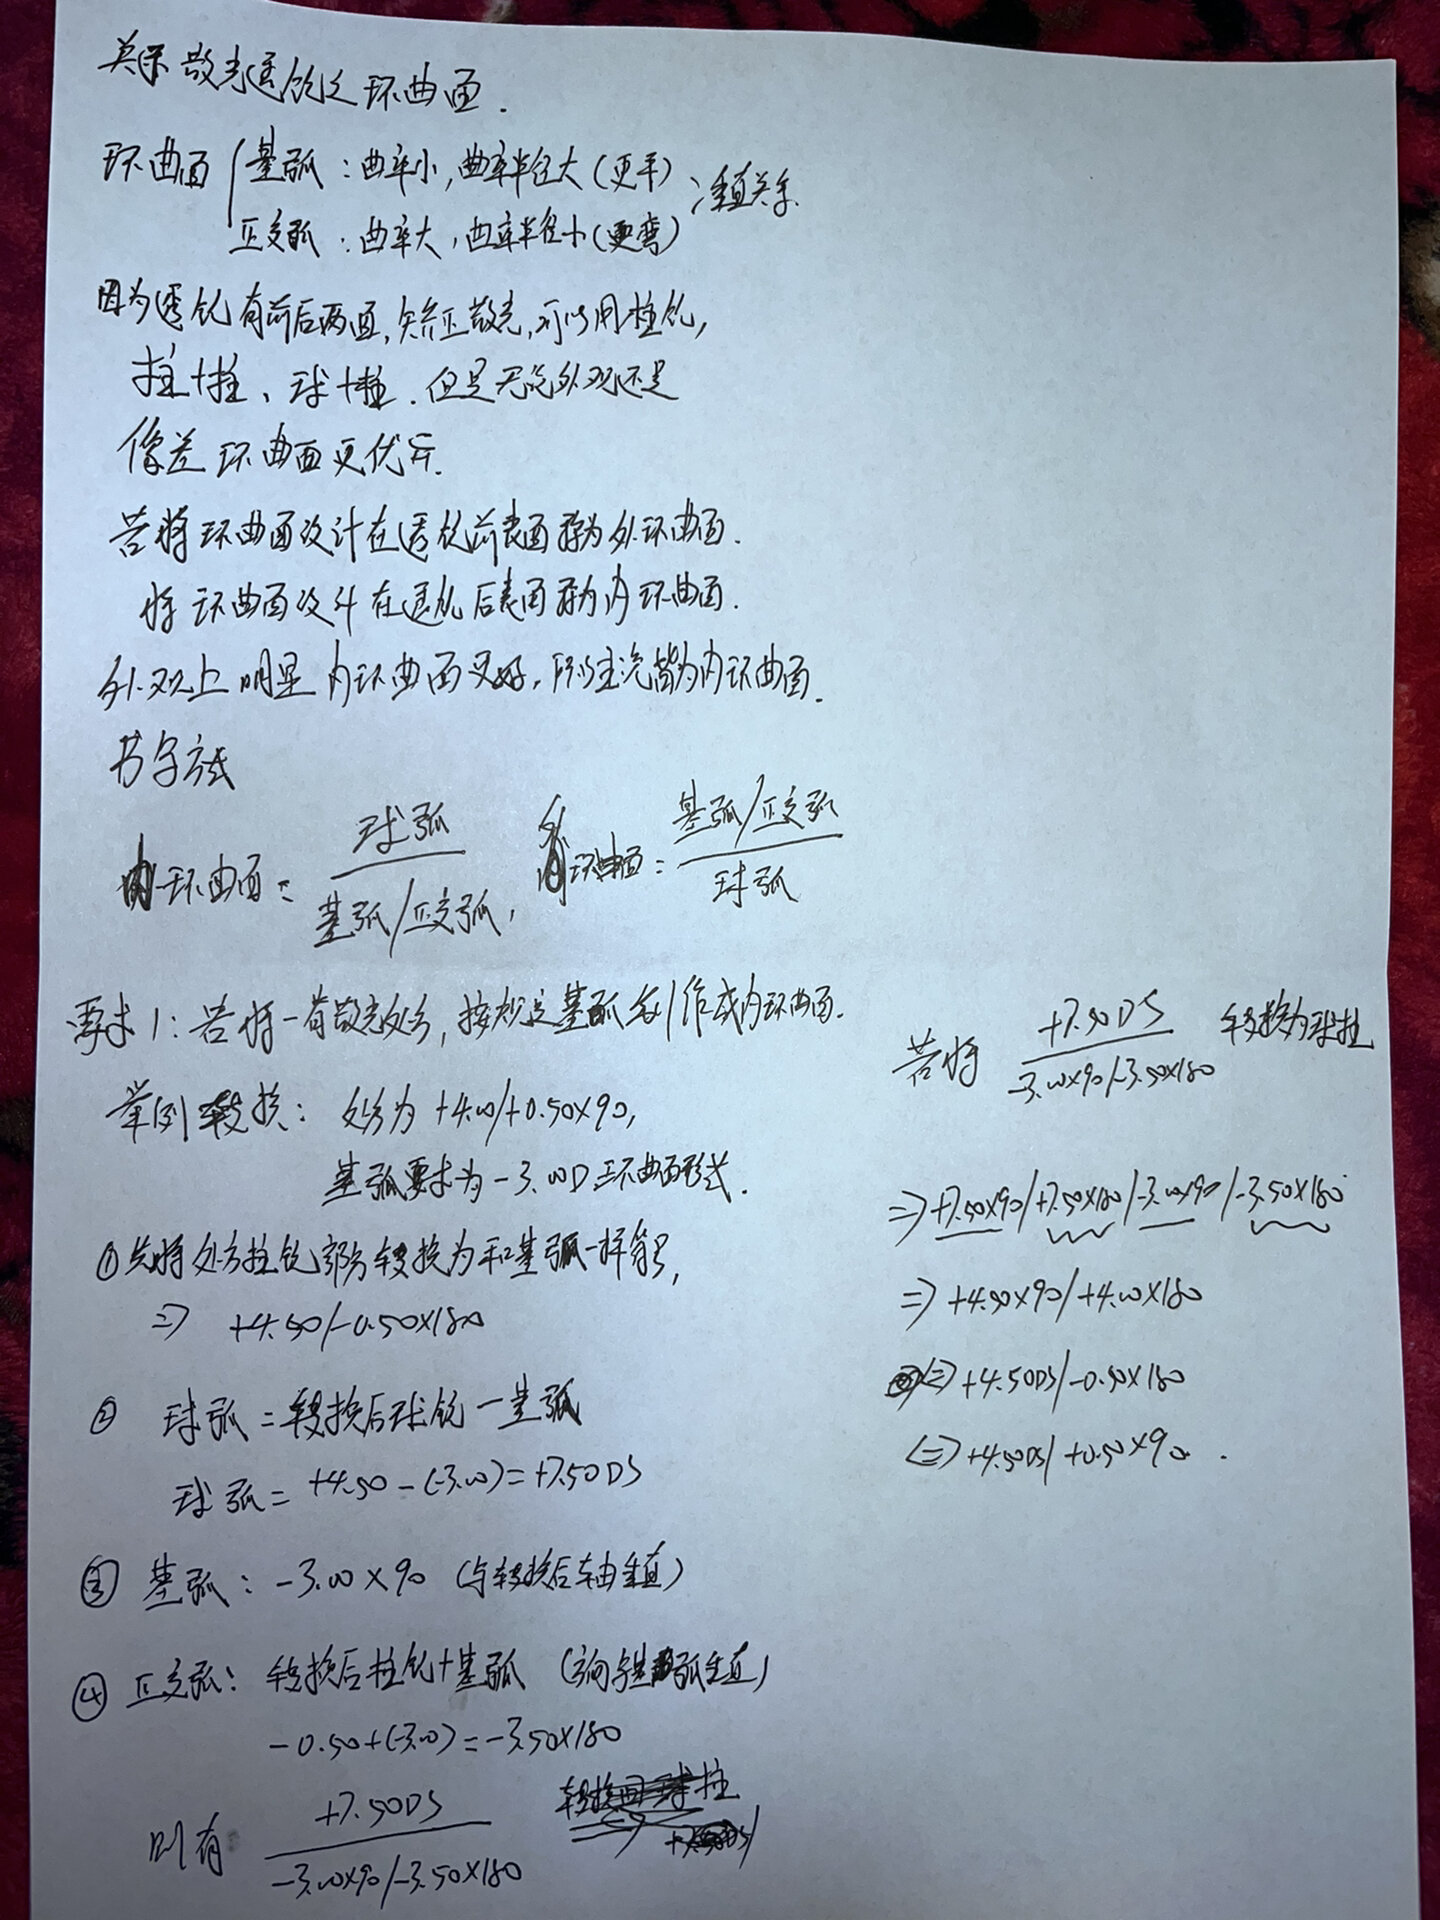 关于散光透镜之环曲面.
环曲面 基弧:曲率小,曲率半径大(更平) ;垂直关系.
正交弧:曲率大,曲率半径小(更弯)
因为透镜有前后两面,矫正散光,可以用柱镜,
柱+柱、球+柱.但是无论外观还是
像差环曲面更优秀.
若将环曲面设计在透镜前表面称为外环曲面.
将环曲面设计在透镜后表面称为内环曲面.
外观上明显内环曲面更好,所以主流皆为内环曲面.
书写方式
内环曲面= 球弧
基弧/正交弧,
外环曲面= 基弧/正交弧
球弧
要求1:若将一有散光处方,按规定基弧制作成内环曲面.
举例转换: 处方为+4.00/+0.50×90,
基弧要求为-3.00D环曲面形式.
①先将处方柱镜部分转换为和基弧一样符号,
⇒ +4.50/-0.50×180
② 球弧=转换后球镜-基弧
球弧= +4.50-(-3.00)=+7.50DS
③ 基弧: -3.00×90 (与转换后轴垂直)
④ 正交弧: 转换后柱镜+基弧 (方向与基弧垂直)
-0.50+(-3.00)=-3.50×180
则有 +7.50DS
-3.00×90/-3.50×180
若将 +7.50DS
-3.00×90/-3.50×180 转换为球柱
⇒+7.50×90/+7.50×180/-3.00×90/-3.50×180
⇒ +4.50×90/+4.00×180
⇔ +4.50DS/-0.50×180
⇔ +4.50DS/+0.50×90.